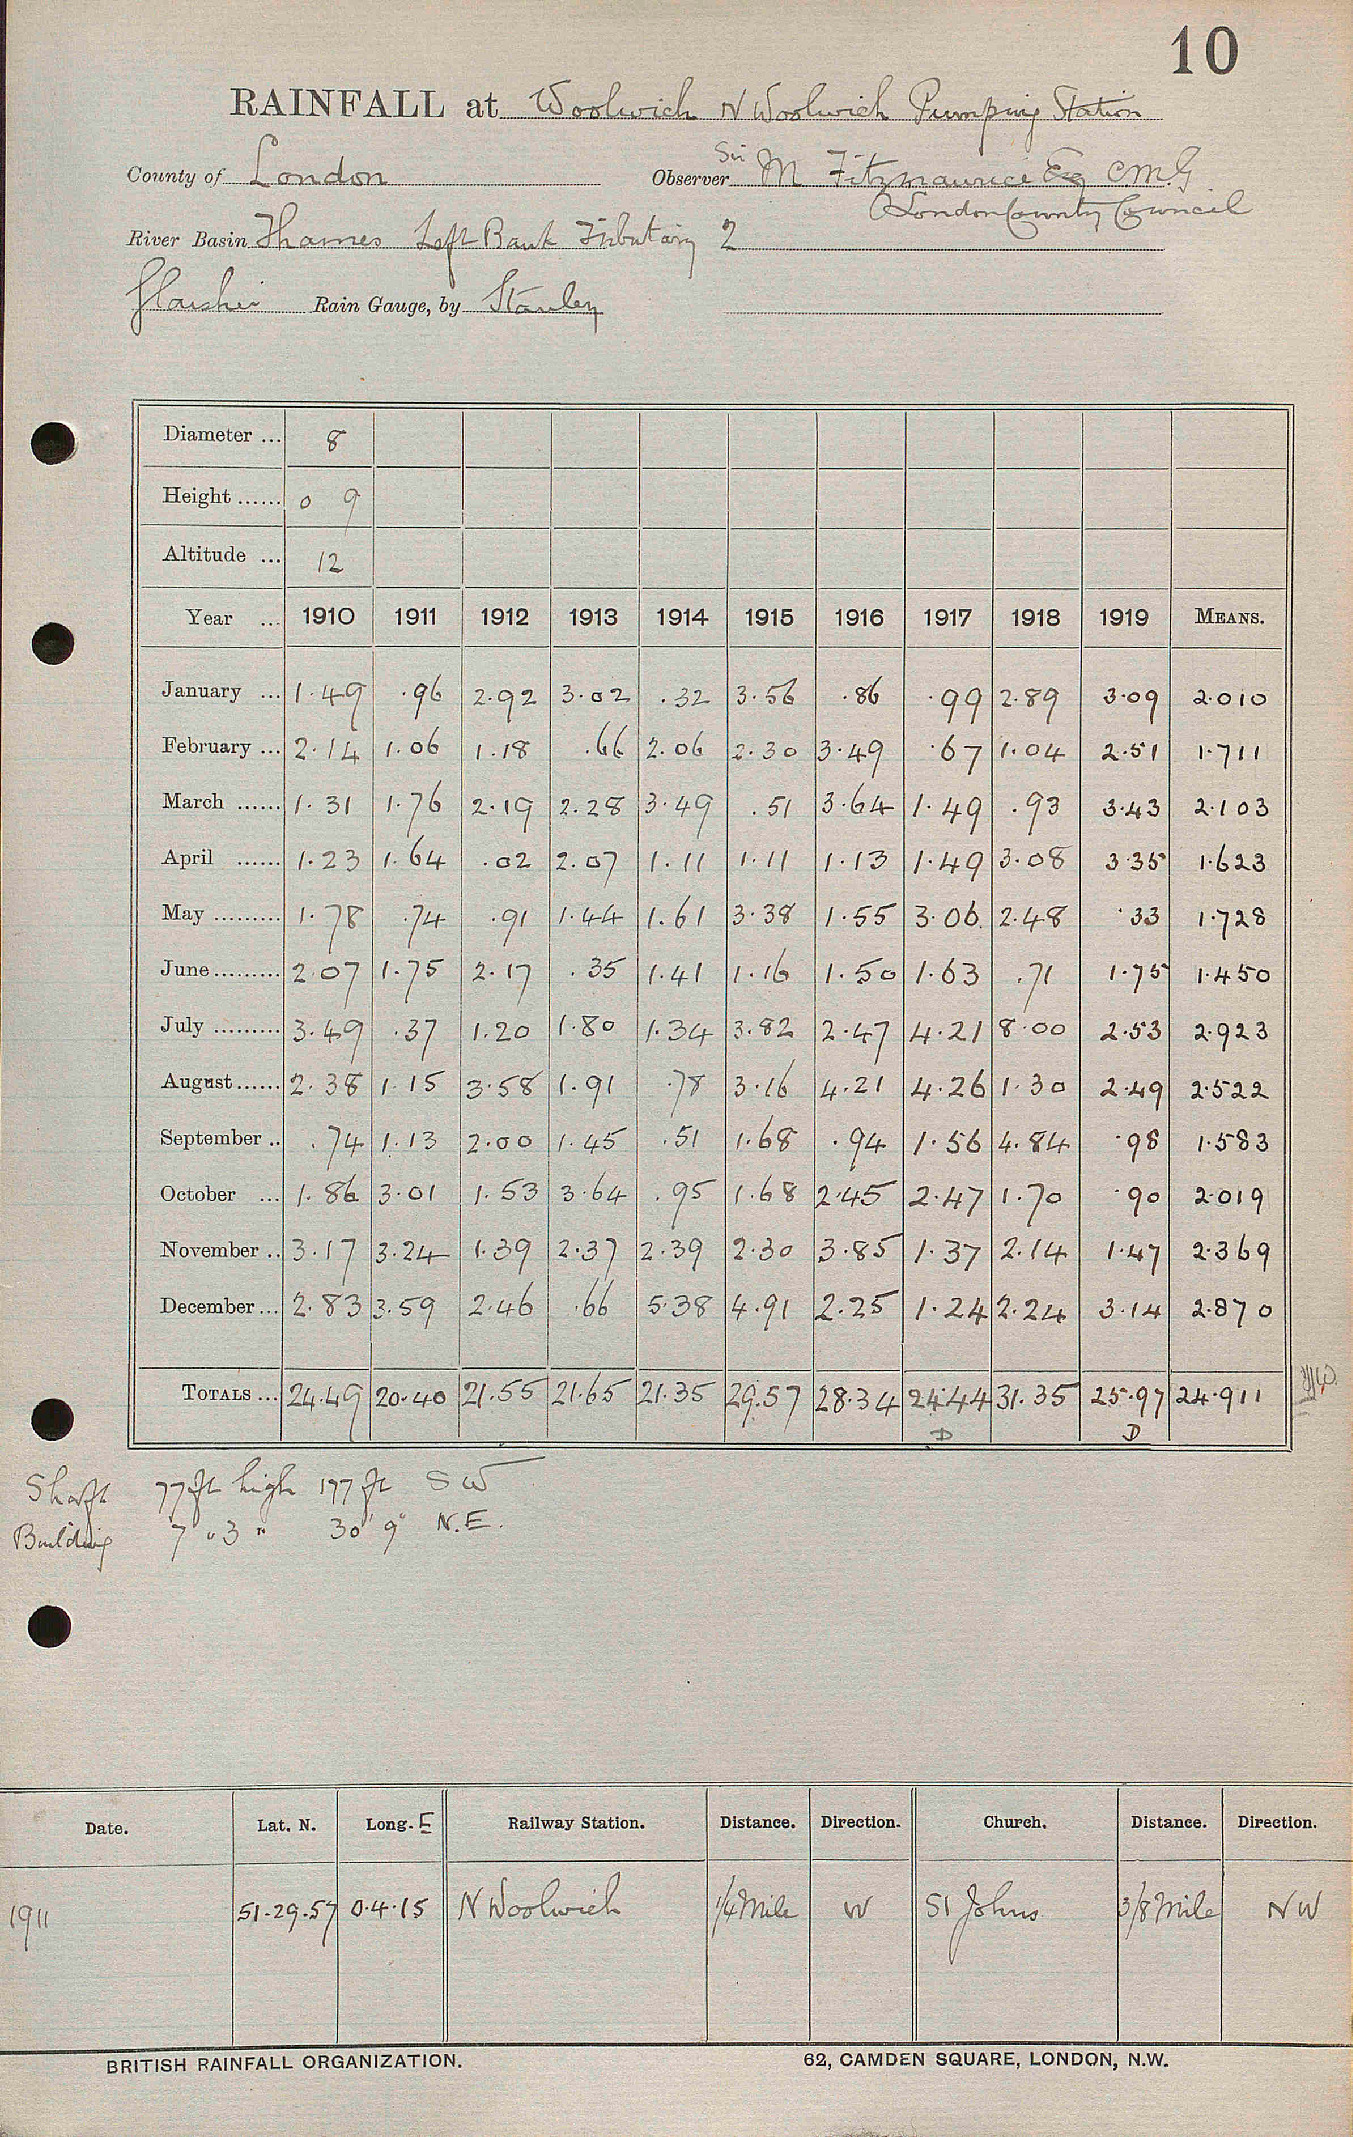 10
RAINFALL at Woolwich N Woolwich Pumping Station
County of London Observer Sir M Fitzmaurice Esq CMG
London County Council
River Basin Thames Left Bank Tributary 2
Glaisher Rain Gauge, by Stanley
Diameter ... 8
Height ...... 0 9
Altitude ... 12
Year ... 1910 1911 1912 1913 1914 1915 1916 1917 1918 1919 MEANS.
January ... 1.49 .96 2.92 3.02 .32 3.56 .86 .99 2.89 3.09 2.010
February ... 2.14 1.06 1.18 .66 2.06 2.30 3.49 .67 1.04 2.51 1.711
March ...... 1.31 1.76 2.19 2.28 3.49 .51 3.64 1.49 .93 3.43 2.103
April ...... 1.23 1.64 .02 2.07 1.11 1.11 1.13 1.49 3.08 3.35 1.623
May ......... 1.78 .74 .91 1.44 1.61 3.38 1.55 3.06 2.48 .33 1.728
June ......... 2.07 1.75 2.17 .35 1.41 1.16 1.50 1.63 .71 1.75 1.450
July ......... 3.49 .37 1.20 1.80 1.34 3.82 2.47 4.21 8.00 2.53 2.923
August...... 2.38 1.15 3.58 1.91 .78 3.16 4.21 4.26 1.30 2.49 2.522
September .. .74 1.13 2.00 1.45 .51 1.68 .94 1.56 4.84 .98 1.583
October ... 1.86 3.01 1.53 3.64 .95 1.68 2.45 2.47 1.70 .90 2.019
November .. 3.17 3.24 1.39 2.37 2.39 2.30 3.85 1.37 2.14 1.47 2.369
December ... 2.83 3.59 2.46 .66 5.38 4.91 2.25 1.24 2.24 3.14 2.870
TOTALS ... 24.49 20.40 21.55 21.65 21.35 29.57 28.34 24.44 31.35 25.97 24.911
D D
Shaft 77 ft high 177 ft SW
Building 7 " 3 " 30' 9" N.E.
Date. Lat. N. Long. E Railway Station. Distance. Direction. Church. Distance. Direction.
1911 51.29.57 0.4.15 N Woolwich 1/4 Mile W St Johns 3/8 Mile NW
BRITISH RAINFALL ORGANIZATION. 62, CAMDEN SQUARE, LONDON, N.W.